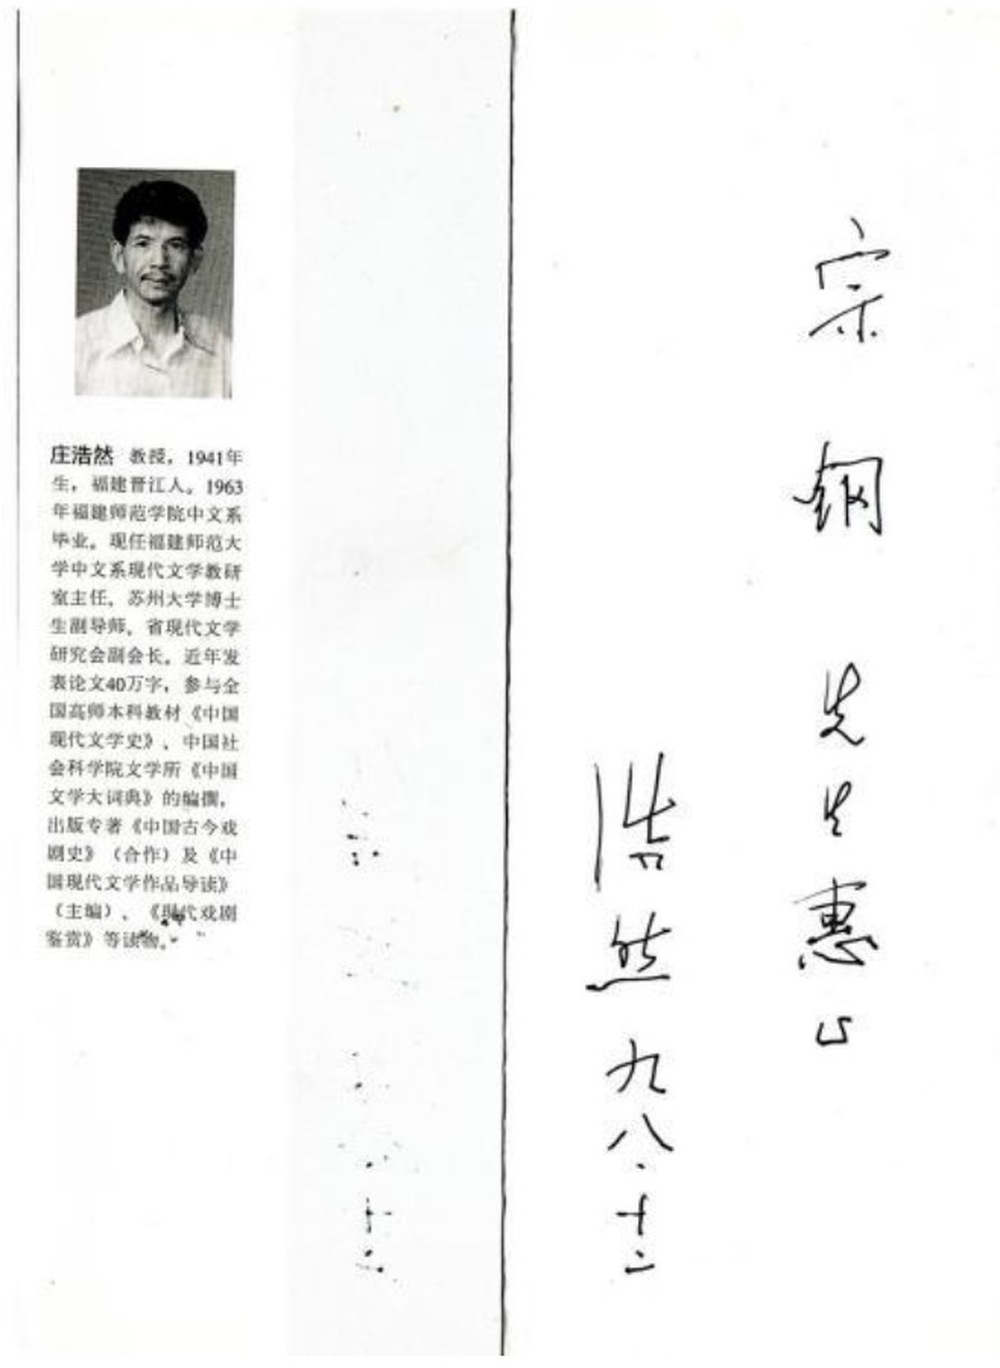 庄浩然 教授，1941年
生，福建晋江人。1963
年福建师范学院中文系
毕业。现任福建师范大
学中文系现代文学教研
室主任，苏州大学博士
生副导师，省现代文学
研究会副会长。近年发
表论文40万字，参与全
国高师本科教材《中国
现代文学史》、中国社
会科学院文学所《中国
文学大词典》的编撰，
出版专著《中国古今戏
剧史》（合作）及《中
国现代文学作品导读》
（主编）、《现代戏剧
鉴赏》等读物。
宗钢先生惠正
浩然九八.十二